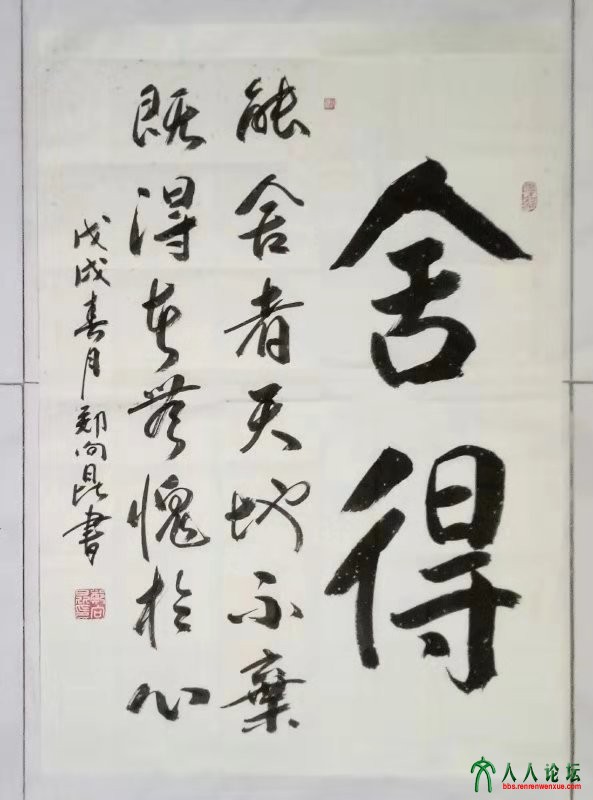 舍得
能舍者天地不棄
既得無愧於心
戊戌春月 郑向昆書
人人论坛
bbs.renrenwenxue.com